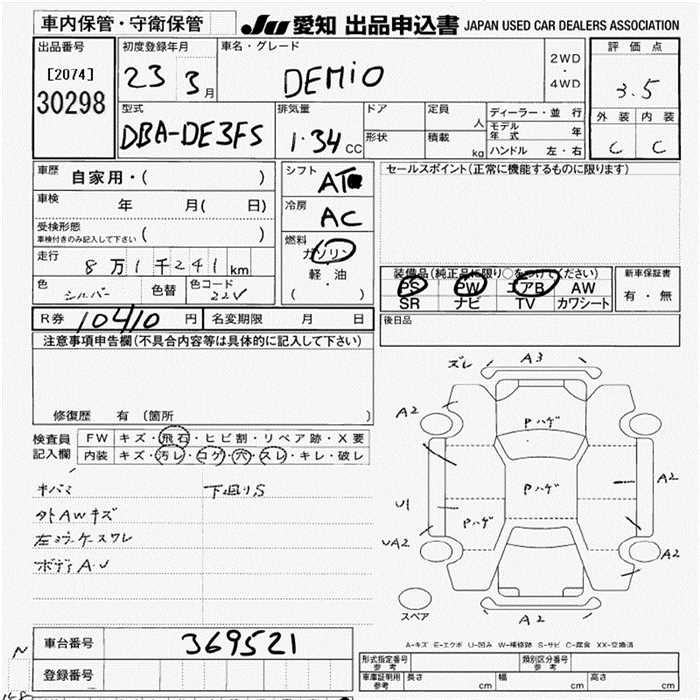 車内保管・守衛保管 JU 愛知 出品申込書 JAPAN USED CAR DEALERS ASSOCIATION
出品番号 初度登録年月 車名・グレード 2WD・4WD 評価点
[2074] 23 3月 DEMIO 3.5
30298 型式 排気量 ドア 定員 人 ディーラー・並行 外装 内装
DBA-DE3FS 1.34 CC 形状 積載 kg モデル年式 年 C C
ハンドル 左・右
車歴 自家用・( ) シフト AT セールスポイント(正常に機能するものに限ります)
車検 年 月( 日) 冷房 AC
受検形態 車検付きのみ記入して下さい ( ) 燃料 ガソリン
走行 8万1千241km 軽・油 装備品(純正品に限り○をつけてください) 新車保証書
色 シルバー 色替 色コード 22V ( ・ ) PS PW エアB AW 有・無
SR ナビ TV カワシート
R券 10410 円 名変期限 月 日 後日品
注意事項申告欄(不具合内容等は具体的に記入して下さい)
修復歴 有 (箇所 )
検査員記入欄 FW キズ・飛石・ヒビ割・リペア跡・X要
内装 キズ・汚レ・コゲ・穴・スレ・キレ・破レ
キバミ 下廻りS
外AWキズ
ボディA.U
ズレ A3
A2 Pハゲ
Pハゲ A2
U1 Pハゲ
UA2 A2
スペア A2
A-キズ E-エクボ U-凹み W-補修跡 S-サビ C-腐食 XX-交換済
N 車台番号 369521
登録番号
形式指定番号 参考 類別区分番号 参考
車庫証明用 参考 長さ cm 幅 cm 高さ cm